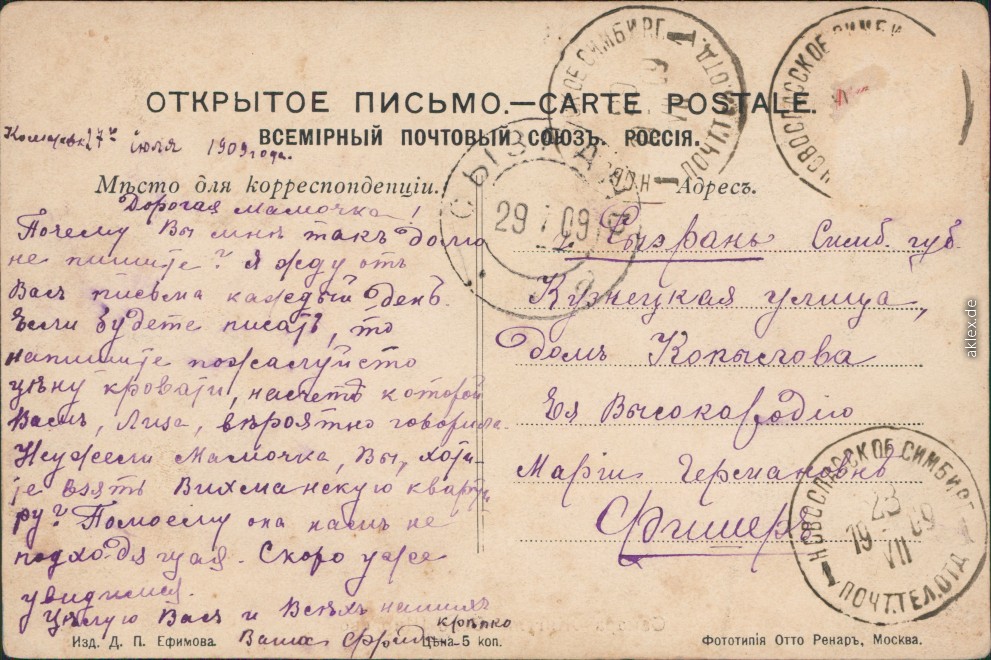 ОТКРЫТОЕ ПИСЬМО.—CARTE POSTALE.
ВСЕМІРНЫЙ ПОЧТОВЫЙ СОЮЗЪ. РОССІЯ.
27го іюля 1909 года.
Мѣсто для корреспонденціи.
Дорогая Мамочка!
Почему Вы мнѣ такъ долго
не пишите? Я жду отъ
Васъ письма каждый день.
Если будете писать, то
напишите пожалуйсто
цѣну кровати, насчетъ которой
Вамъ, Лиза, вѣроятно говорила.
Неужели Мамочка, Вы, хоти-
те взять Вихманскую кварти-
ру? Помоему она намъ не
подходящая. Скоро уже
увидимся.
Цѣлую Васъ и Всѣхъ нашихъ
крѣпко
Ваша
Адресъ.
г. Сызрань Симб. губ.
Кузнецкая улица,
домъ Копылова
Ея Высокородію
Маріи Германовнѣ
Фишеръ
СЫЗРАНЬ
29 7 09
НОВОСПАССКОЕ СИМБИРГ.
ПОЧТ.ТЕЛ.ОТД.
НОВОСПАССКОЕ СИМБИ
НОВОСПАССКОЕ СИМБИРГ.
23
19 09
VII
ПОЧТ.ТЕЛ.ОТД.
Изд. Д. П. Ефимова.
Цѣна 5 коп.
Фототипія Отто Ренаръ, Москва.
aklex.de